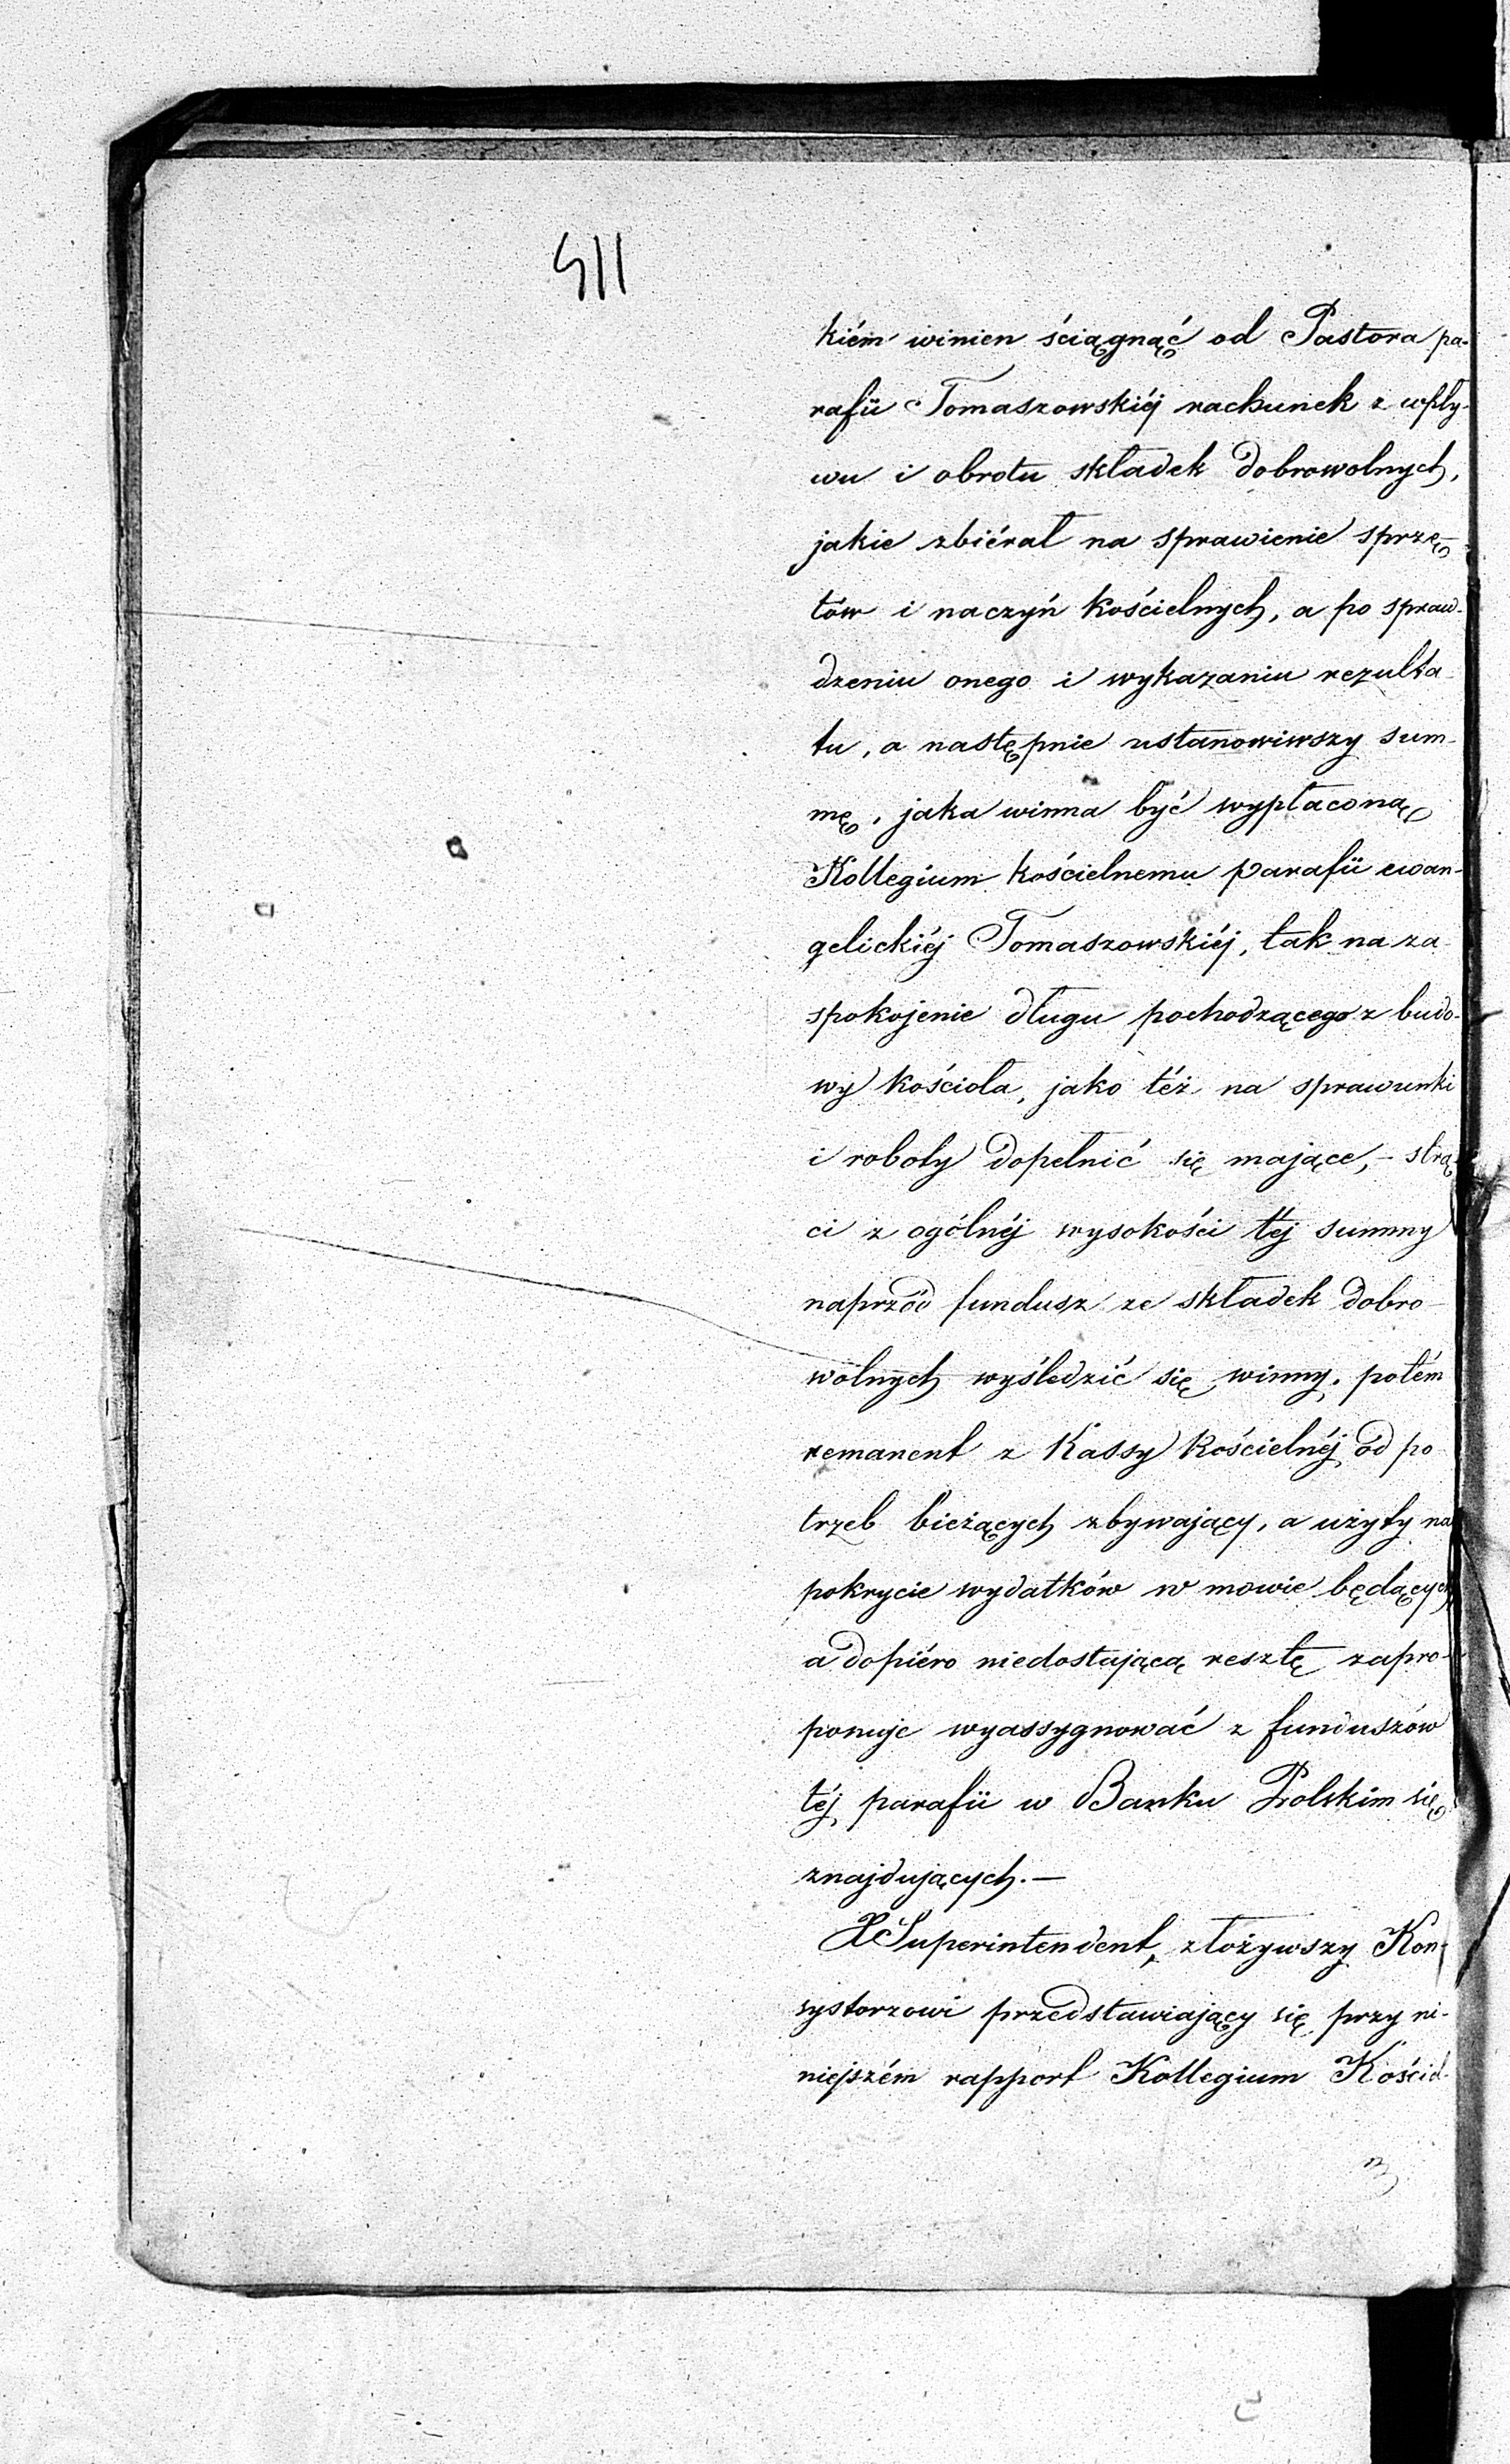 511
kiém winien ściągnąć od Pastora pa-
rafii Tomaszowskiéj rachunek z wpły-
wu i obrotu składek dobrowolnych,
jakie zbiérał na sprawienie sprzę-
tów i naczyń kościelnych, a po spraw-
dzeniu onego i wykazaniu rezulta-
tu, a następnie ustanowiwszy sum-
mę, jaka winna być wypłaconą
Kollegium kościelnemu parafii ewan-
gelickiéj Tomaszowskiéj, tak na za-
spokojenie długu pochodzącego z budo-
wy kościoła, jako téż na sprawunki
i roboty dopełnić się mające, - strą-
ci z ogólnéj wysokości téj summy
naprzód fundusz ze składek dobro-
wolnych wyśledzić się winny, potém
remanent z Kassy Kościelnéj od po-
trzeb bieżących zbywający, a użyty na
pokrycie wydatków w mowie będących
a dopiéro niedostającą resztę zapro-
ponuje wyassygnować z funduszów
téj parafii w Banku Polskim się
znajdujących. —
X Superintendent, złożywszy Kon-
systorzowi przedstawiający się przy ni-
niejszém rapport Kollegium Kościel-